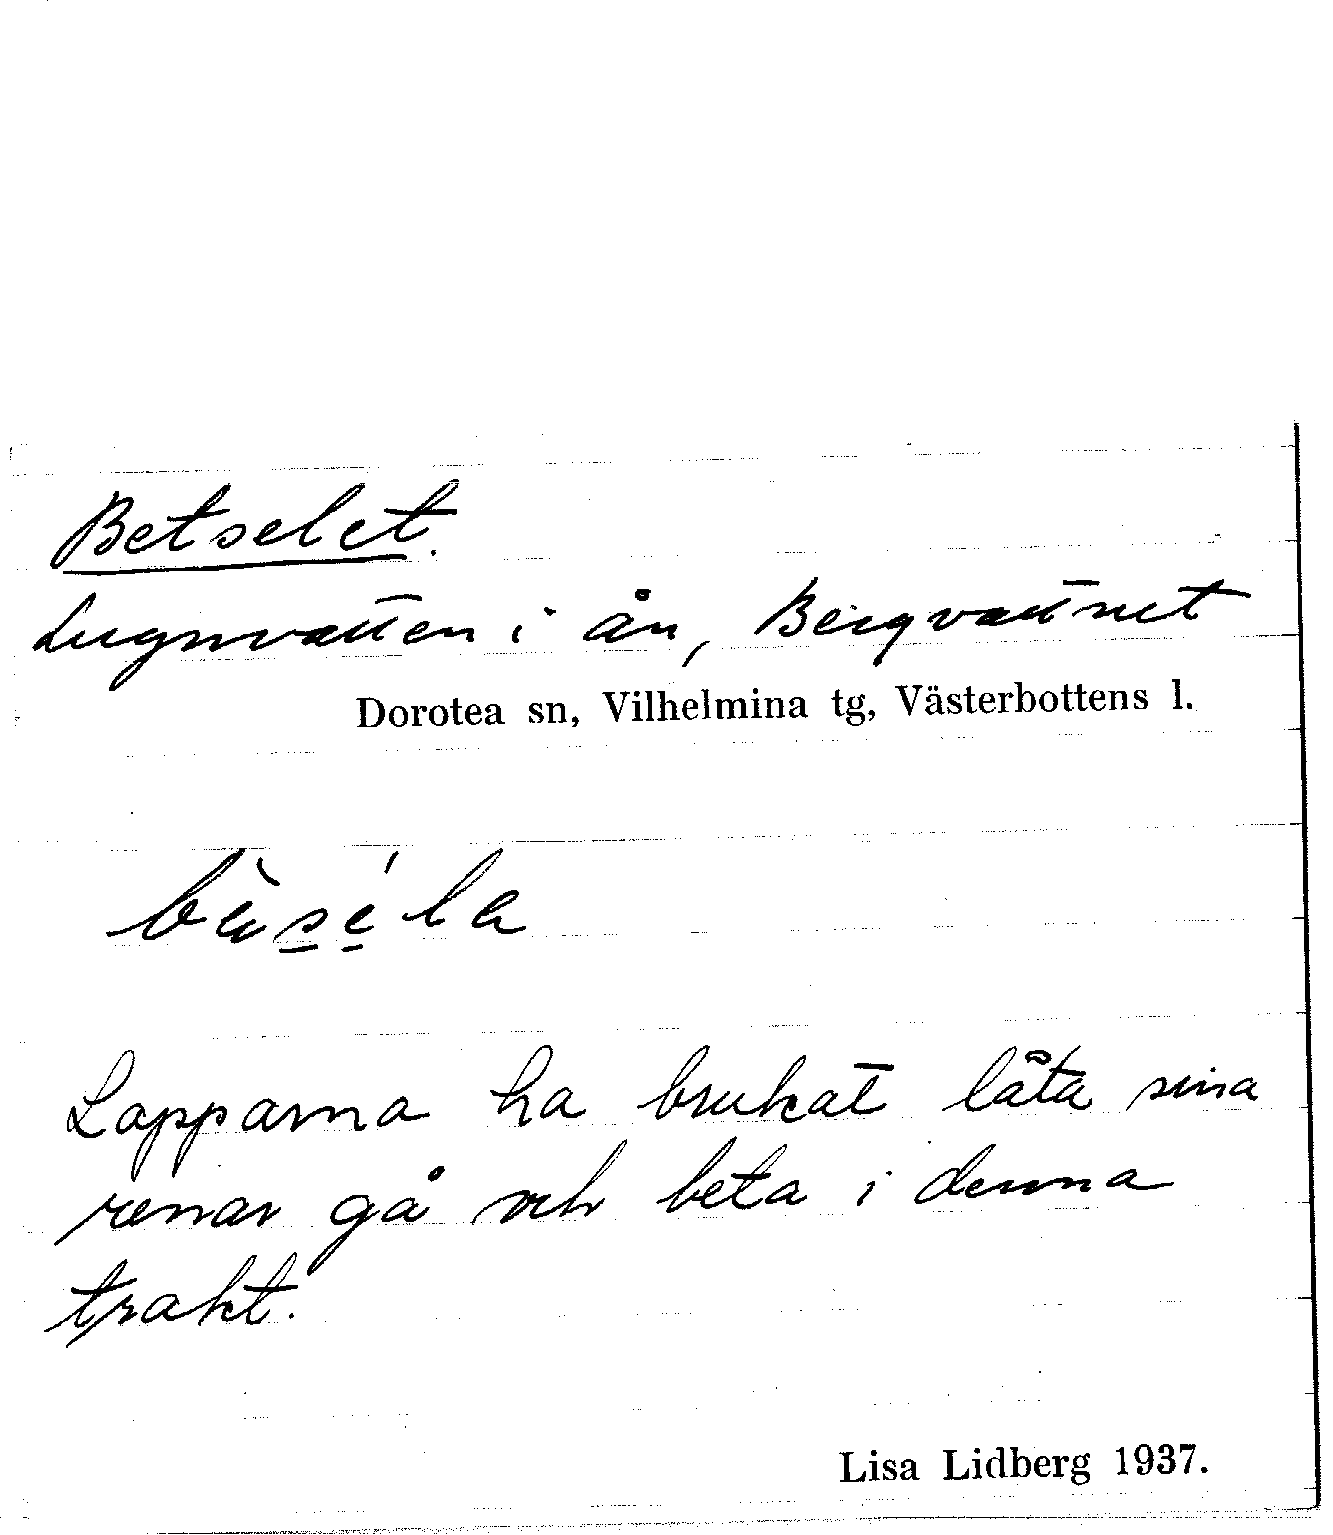 Betselet.
Lugnvatten i ån, Bergvattnet
Dorotea sn, Vilhelmina tg, Västerbottens l.
Lapparna ha brukat låta sina
renar gå och beta i denna
trakt.
Lisa Lidberg 1937.